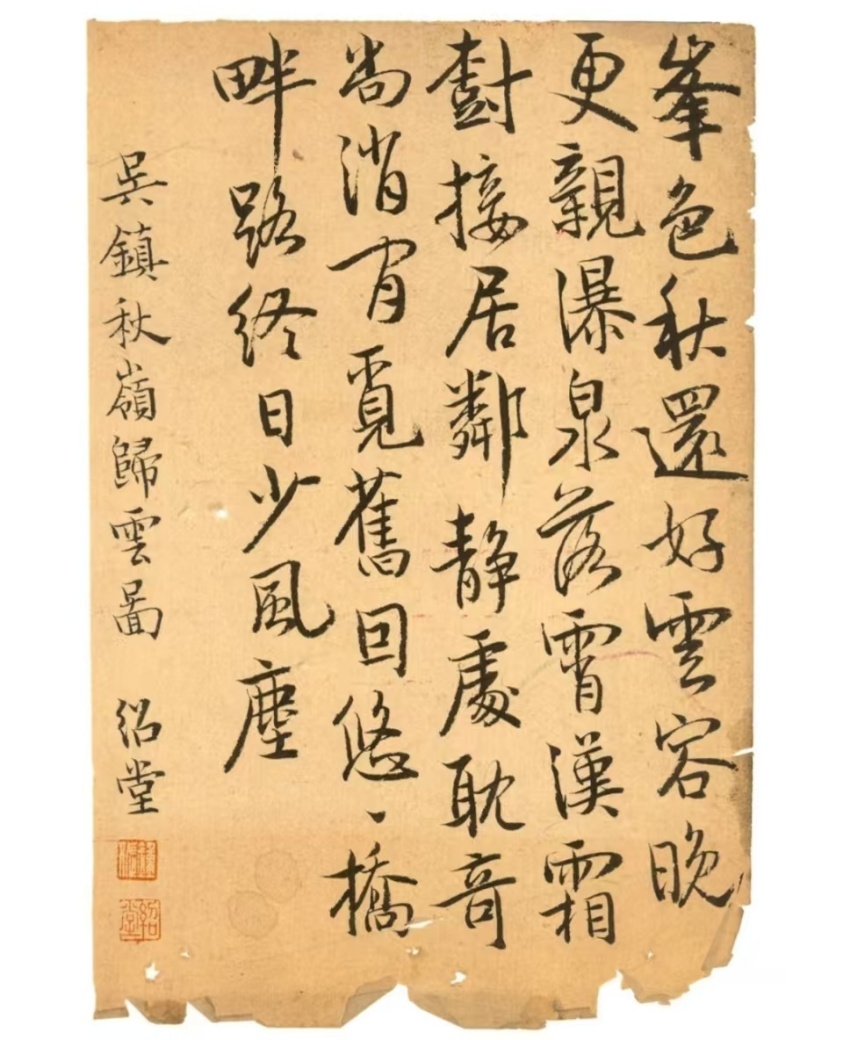 峯色秋還好雲容晚
更親瀑泉落霄漢霜
樹接居鄰静處耽奇
尚消閒覓舊因悠丶橋
畔路終日少風塵
吴鎮秋嶺歸雲圖 紹堂
紹堂